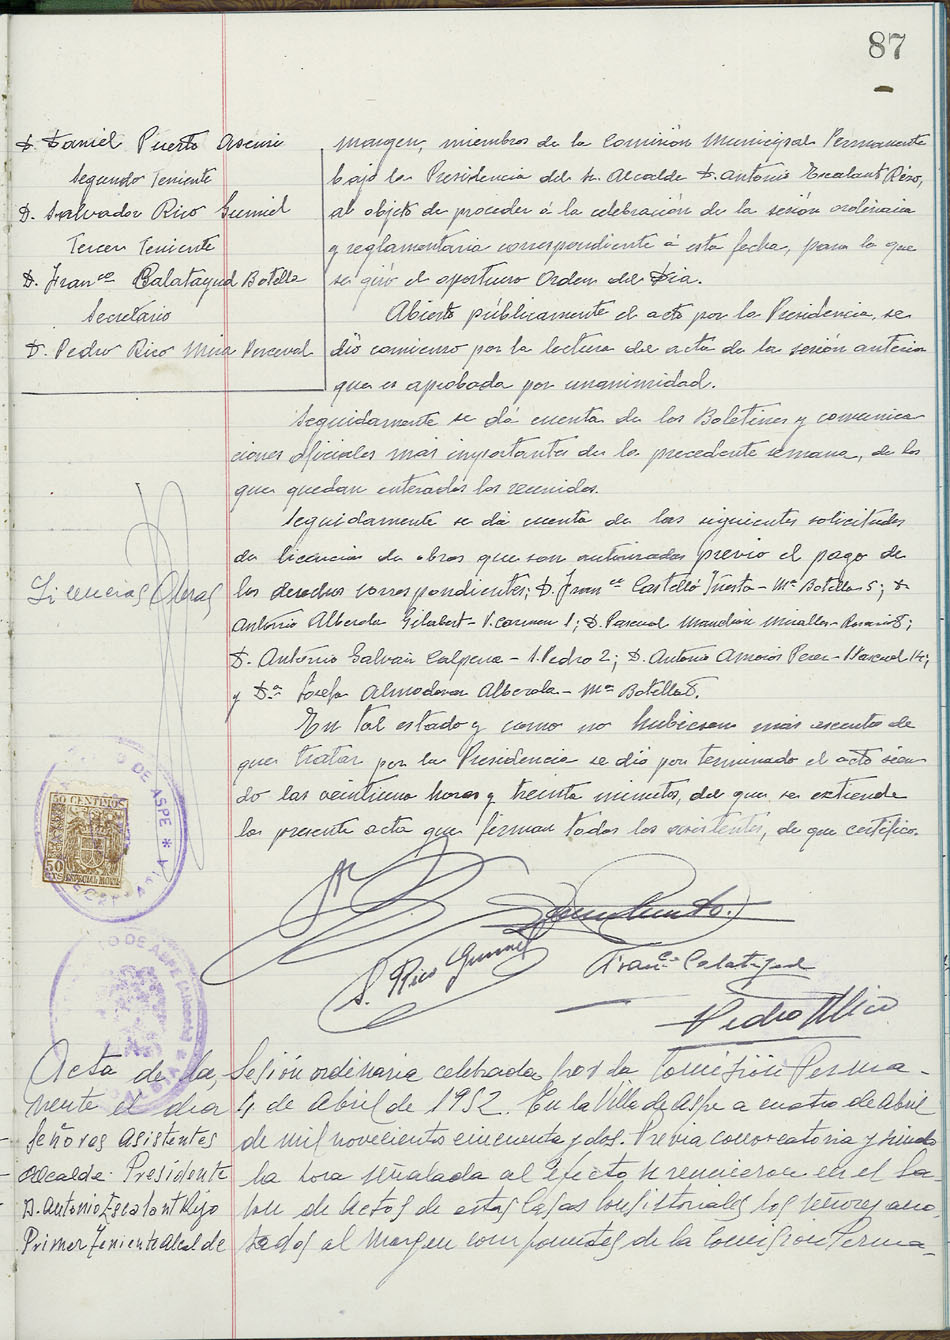 87
D. Daniel Puerto Asensi
Segundo Teniente
D. Salvador Rico Gumiel
Tercer Teniente
D. Franco Calatayud Botella
Secretario
D. Pedro Rico Mira Perceval
margen, miembros de la Comisión Municipal Permanente
bajo la Presidencia del Sr. Alcalde D. Antonio Escalant Rizo,
al objeto de proceder á la celebración de la sesión ordinaria
y reglamentaria correspondiente á esta fecha, para la que
se giró el oportuno Orden del Dia.
Abierto públicamente el acto por la Presidencia, se
dió comienzo por la lectura del acta de la sesión anterior
que es aprobada por unanimidad.
Seguidamente se dá cuenta de los Boletines y comunica
ciones oficiales más importantes de la precedente semana, de los
que quedan enterados los reunidos.
Licencias Obras
Seguidamente se dá cuenta de las siguientes solicitudes
de licencias de obras que son autorizadas previo el pago de
los derechos correspondientes; D. Franco Castelló - Mª Botella 5; D.
Antonio Alberola Gilabert - V. Carmen 1; D. Pascual Miralles - Rosario 8;
D. Antonio Galván Calpena - S. Pedro 2; D. Antonio Amorós Perez - 14;
y Dª Josefa Almodovar Alberola - Mª Botella 8.
En tal estado y como no hubiesen más asuntos de
que tratar por la Presidencia se dió por terminado el acto sien
do las veintiuna horas y treinta minutos, del que se extiende
la presente acta que firman todos los asistentes, de que certifico.
50 CENTIMOS
50 CTS ESPECIAL MOVIL
DE ASPE * SECRETARIA
S. Rico Gumiel
Franco Calatayud
Pedro Rico
DE ASPE (Alicante) *
Acta de la, Sesión ordinaria celebrada por la Comisión Perma-
nente el dia 4 de Abril de 1952. En la Villa de Aspe a cuatro de Abril
Señores Asistentes
Alcalde Presidente
D. Antonio Escalant Rijo
Primer Teniente Alcalde
de mil novecientos cincuenta y dos. Previa convocatoria y siendo
la hora señalada al efecto se reunieron en el Sa-
lon de Actos de estas Casas Consistoriales los señores ano-
tados al margen componentes de la Comision Perma-